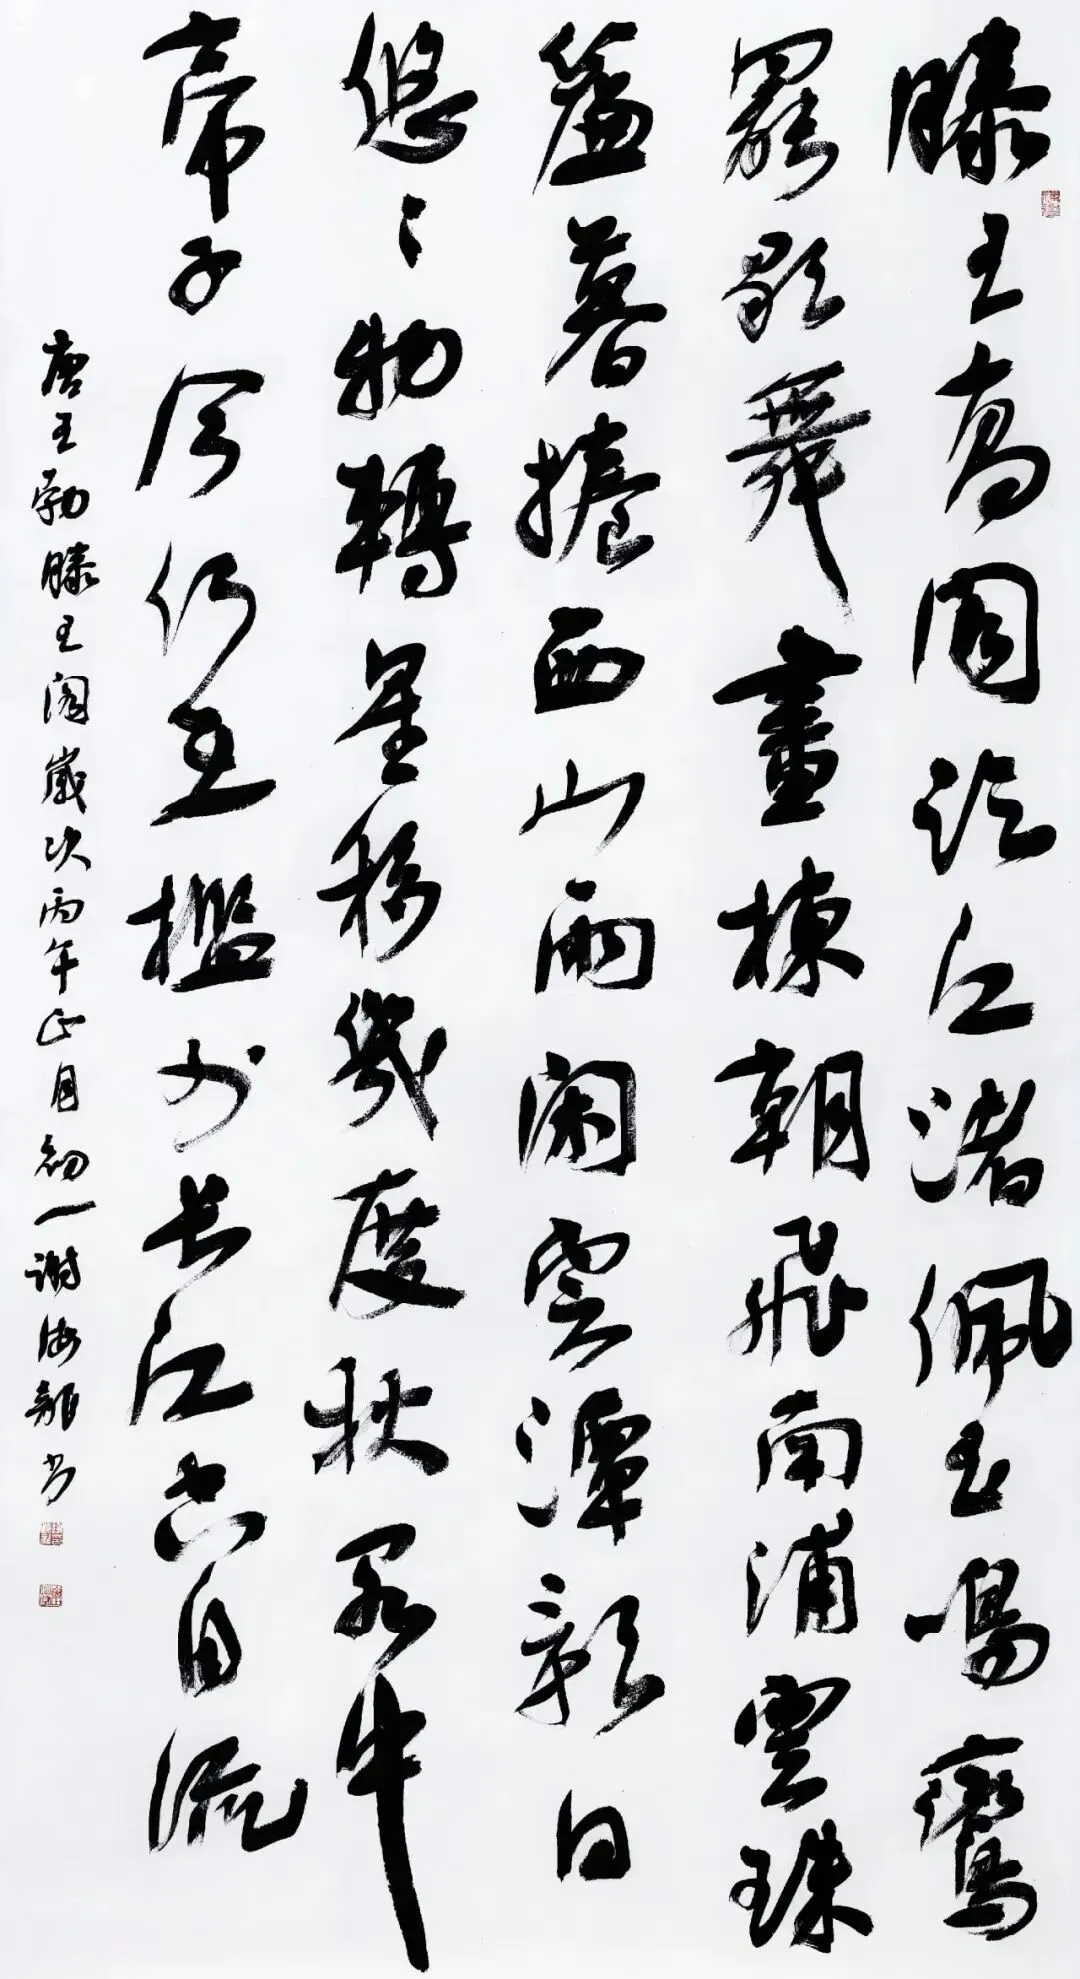 滕王高閣臨江渚佩玉鳴鸞
罷歌舞畫棟朝飛南浦雲珠
簾暮捲西山雨閑雲潭影日
悠々物轉星移幾度秋閣中
帝子今何在檻外長江空自流
唐王勃滕王閣歲次丙午正月初一謝海书